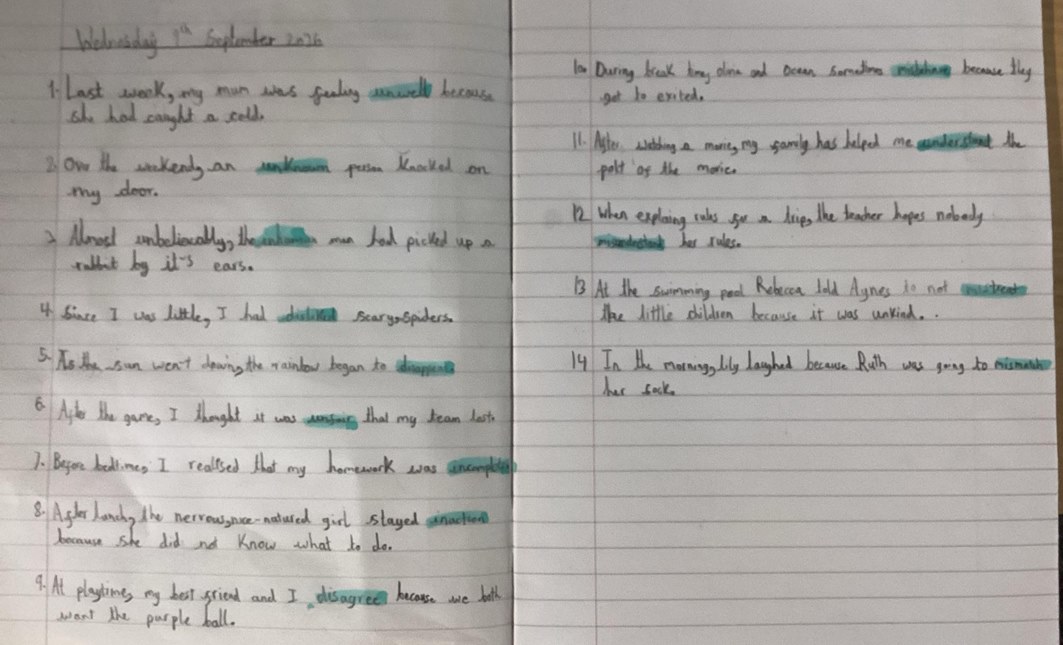 Wednesday 9th September 2026
1. Last week, my mum was feeling unwell because
she had caught a cold.
2. Over the weekend, an unknown person knocked on
my door.
3. Almost unbelievably, the inhuman man had picked up a
rabbit by it's ears.
4. Since I was little, I had disliked scary, spiders.
5. As the sun went down, the rainbow began to disappear
6. After the game, I thought it was unfair that my team lost.
7. Before bedtime, I realised that my homework was incomplete
8. After lunch, the nervous, nice-natured girl stayed inactive
because she did not know what to do.
9. At playtime, my best friend and I disagree because we both
want the purple ball.
10. During break time, olivia and Ocean sometimes misbehave because they
get to exited.
11. After watching a movie, my family has helped me understand the
of the movie.
12 When explaing rules for a trip, the teacher hopes nobody
her rules.
13 At the swimming pool Rebecca told Agnes to not mistreat
the little children because it was unkind.
14 In the morning, lily laughed because Ruth was going to mismatch
her sock.